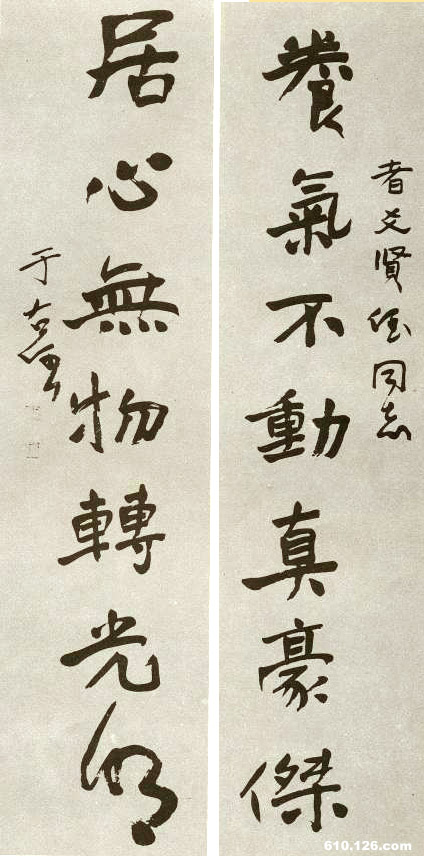 養氣不動真豪傑
居心無物轉光明
者爻賢侄同志
于右任
610.126.com